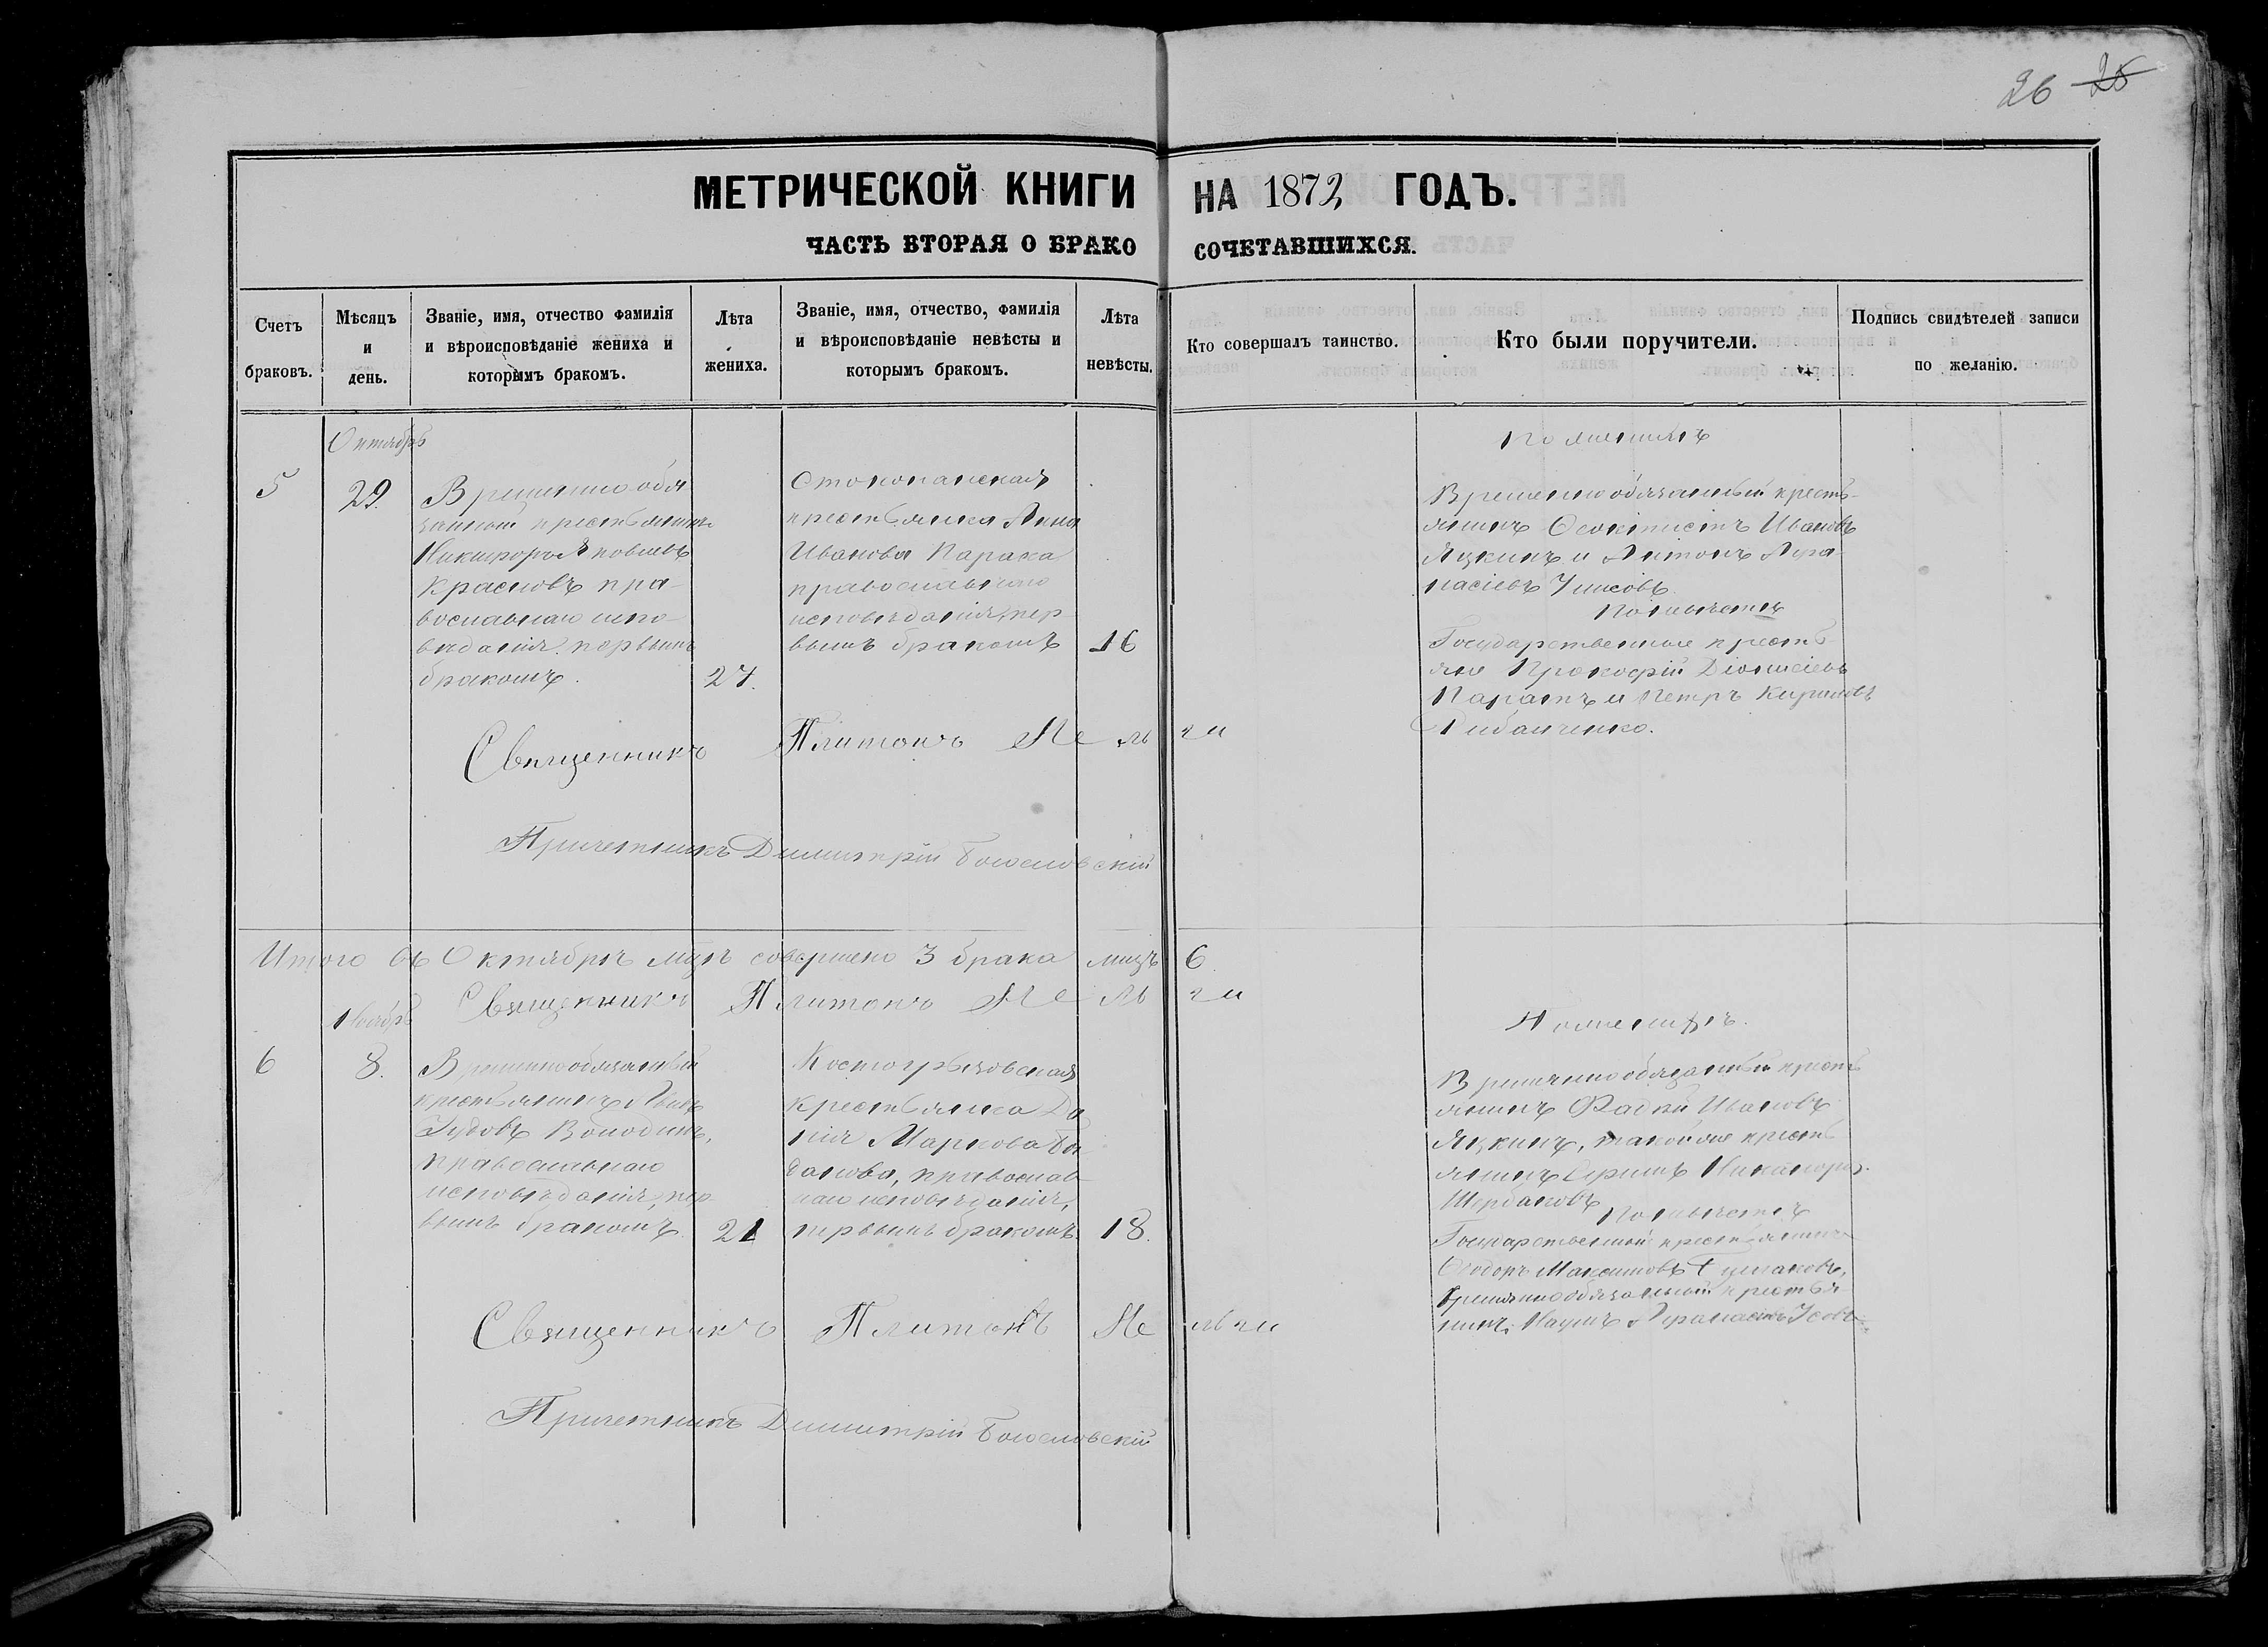 26 25
МЕТРИЧЕСКОЙ КНИГИ НА 1872 ГОДЪ.
ЧАСТЬ ВТОРАЯ О БРАКОСОЧЕТАВШИХСЯ.
Счетъ браковъ.
Мѣсяцъ и день.
Званіе, имя, отчество фамилія
и вѣроисповѣданіе жениха и
которымъ бракомъ.
Лѣта жениха.
Званіе, имя, отчество, фамилія
и вѣроисповѣданіе невѣсты и
которымъ бракомъ.
Лѣта невѣсты.
Кто совершалъ таинство.
Кто были поручители.
Подпись свидѣтелей записи
по желанію.
Октябрь
5
29.
Временно-обя-
занный крестьянинъ
Никифоръ Яковлевъ
Красновъ пра-
вославнаго испо-
вѣданія, первымъ
бракомъ.
27.
Стокопанская
крестьянка Анна
Иванова Параха
православнаго
исповѣданія, пер-
вымъ бракомъ
16
По женихѣ
Временно обязанный кресть-
янинъ Ѳеоктистъ Ивановъ
Яцкинъ и Антонъ Аѳа-
насіевъ
По невѣстѣ
Государственные кресть-
яне Прокофій Діонисіевъ
и Петръ Кириловъ
Священникъ Платонъ Мельги
Причетникъ Димитрій Богословскій
Итого въ Октябрѣ мцѣ совершено 3 брака лицъ 6
Священникъ Платонъ Мельги
Ноябрь
6
8.
Временнообязанный
крестьянинъ Левъ
Володинъ,
православнаго
исповѣданія, пер-
вымъ бракомъ
21
Костогрызовская
крестьянка До
мна Маркова Бог
данова, православ-
наго исповѣданія,
первымъ бракомъ.
18.
По женихѣ.
Временно обязанный кресть
янинъ Фадѣй Ивановъ
Яцкинъ, такой же кресть
янинъ Никаноръ
Щербаковъ
По невѣстѣ
Государственный крестьянинъ
Ѳеодоръ Максимовъ
Временнообязанный крестья
нинъ Наумъ Усовъ
Священникъ Платонъ Мельги
Причетникъ Димитрій Богословскій